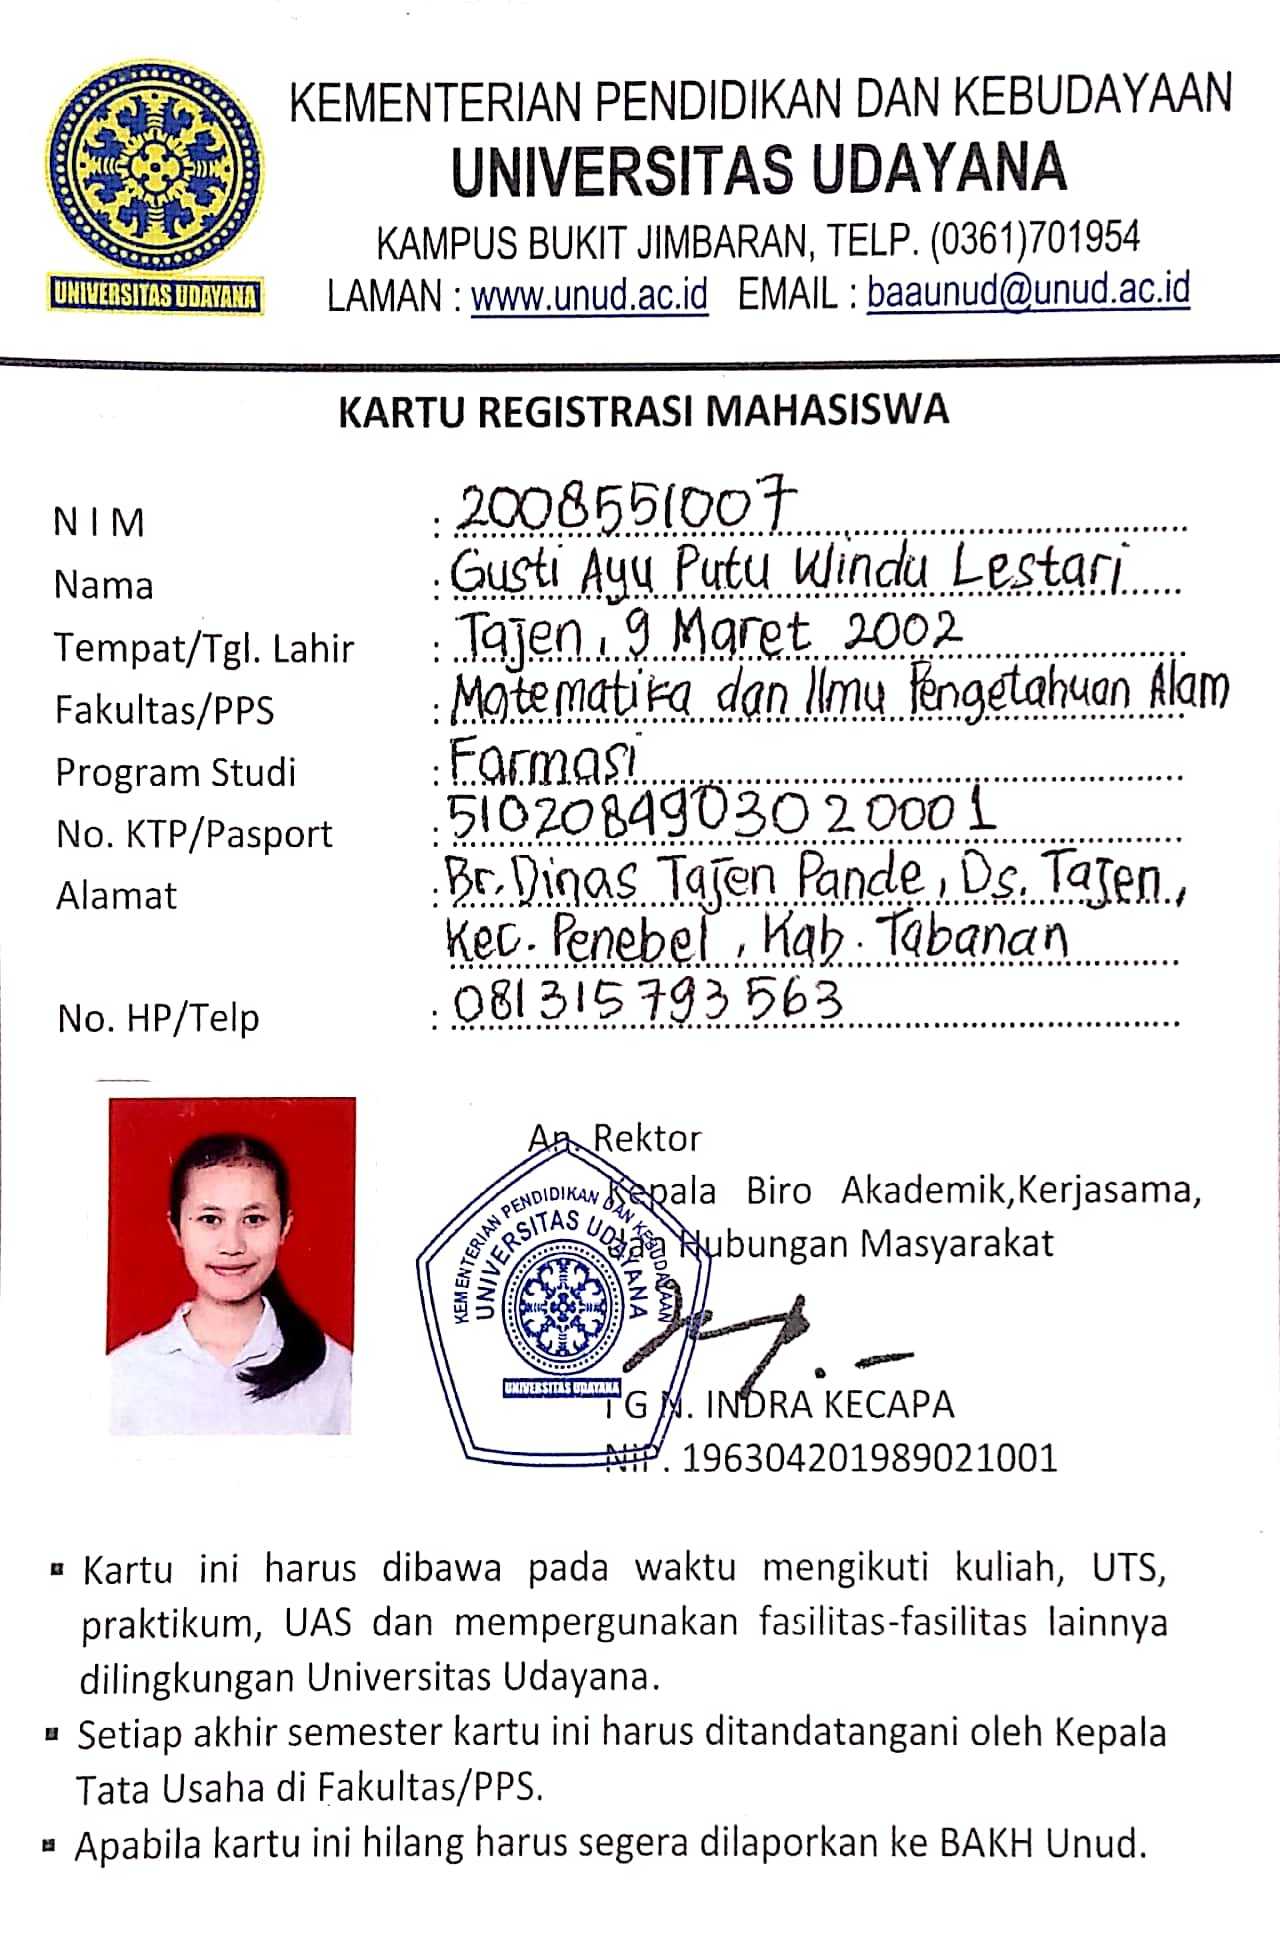 KEMENTERIAN PENDIDIKAN DAN KEBUDAYAAN
UNIVERSITAS UDAYANA
KAMPUS BUKIT JIMBARAN, TELP. (0361)701954
LAMAN : www.unud.ac.id EMAIL : baaunud@unud.ac.id
UNIVERSITAS UDAYANA
KARTU REGISTRASI MAHASISWA
N I M : 2008551007
Nama : Gusti Ayu Putu Windu Lestari
Tempat/Tgl. Lahir : Tajen, 9 Maret 2002
Fakultas/PPS : Matematika dan Ilmu Pengetahuan Alam
Program Studi : Farmasi
No. KTP/Pasport : 5102084903020001
Alamat : Br. Dinas Tajen Pande, Ds. Tajen,
Kec. Penebel, Kab. Tabanan
No. HP/Telp : 081315793563
An. Rektor
Kepala Biro Akademik,Kerjasama,
dan Hubungan Masyarakat
KEMENTERIAN PENDIDIKAN DAN KEBUDAYAAN
UNIVERSITAS UDAYANA
UNIVERSITAS UDAYANA
I G N. INDRA KECAPA
NIP. 196304201989021001
▪ Kartu ini harus dibawa pada waktu mengikuti kuliah, UTS,
praktikum, UAS dan mempergunakan fasilitas-fasilitas lainnya
dilingkungan Universitas Udayana.
▪ Setiap akhir semester kartu ini harus ditandatangani oleh Kepala
Tata Usaha di Fakultas/PPS.
▪ Apabila kartu ini hilang harus segera dilaporkan ke BAKH Unud.